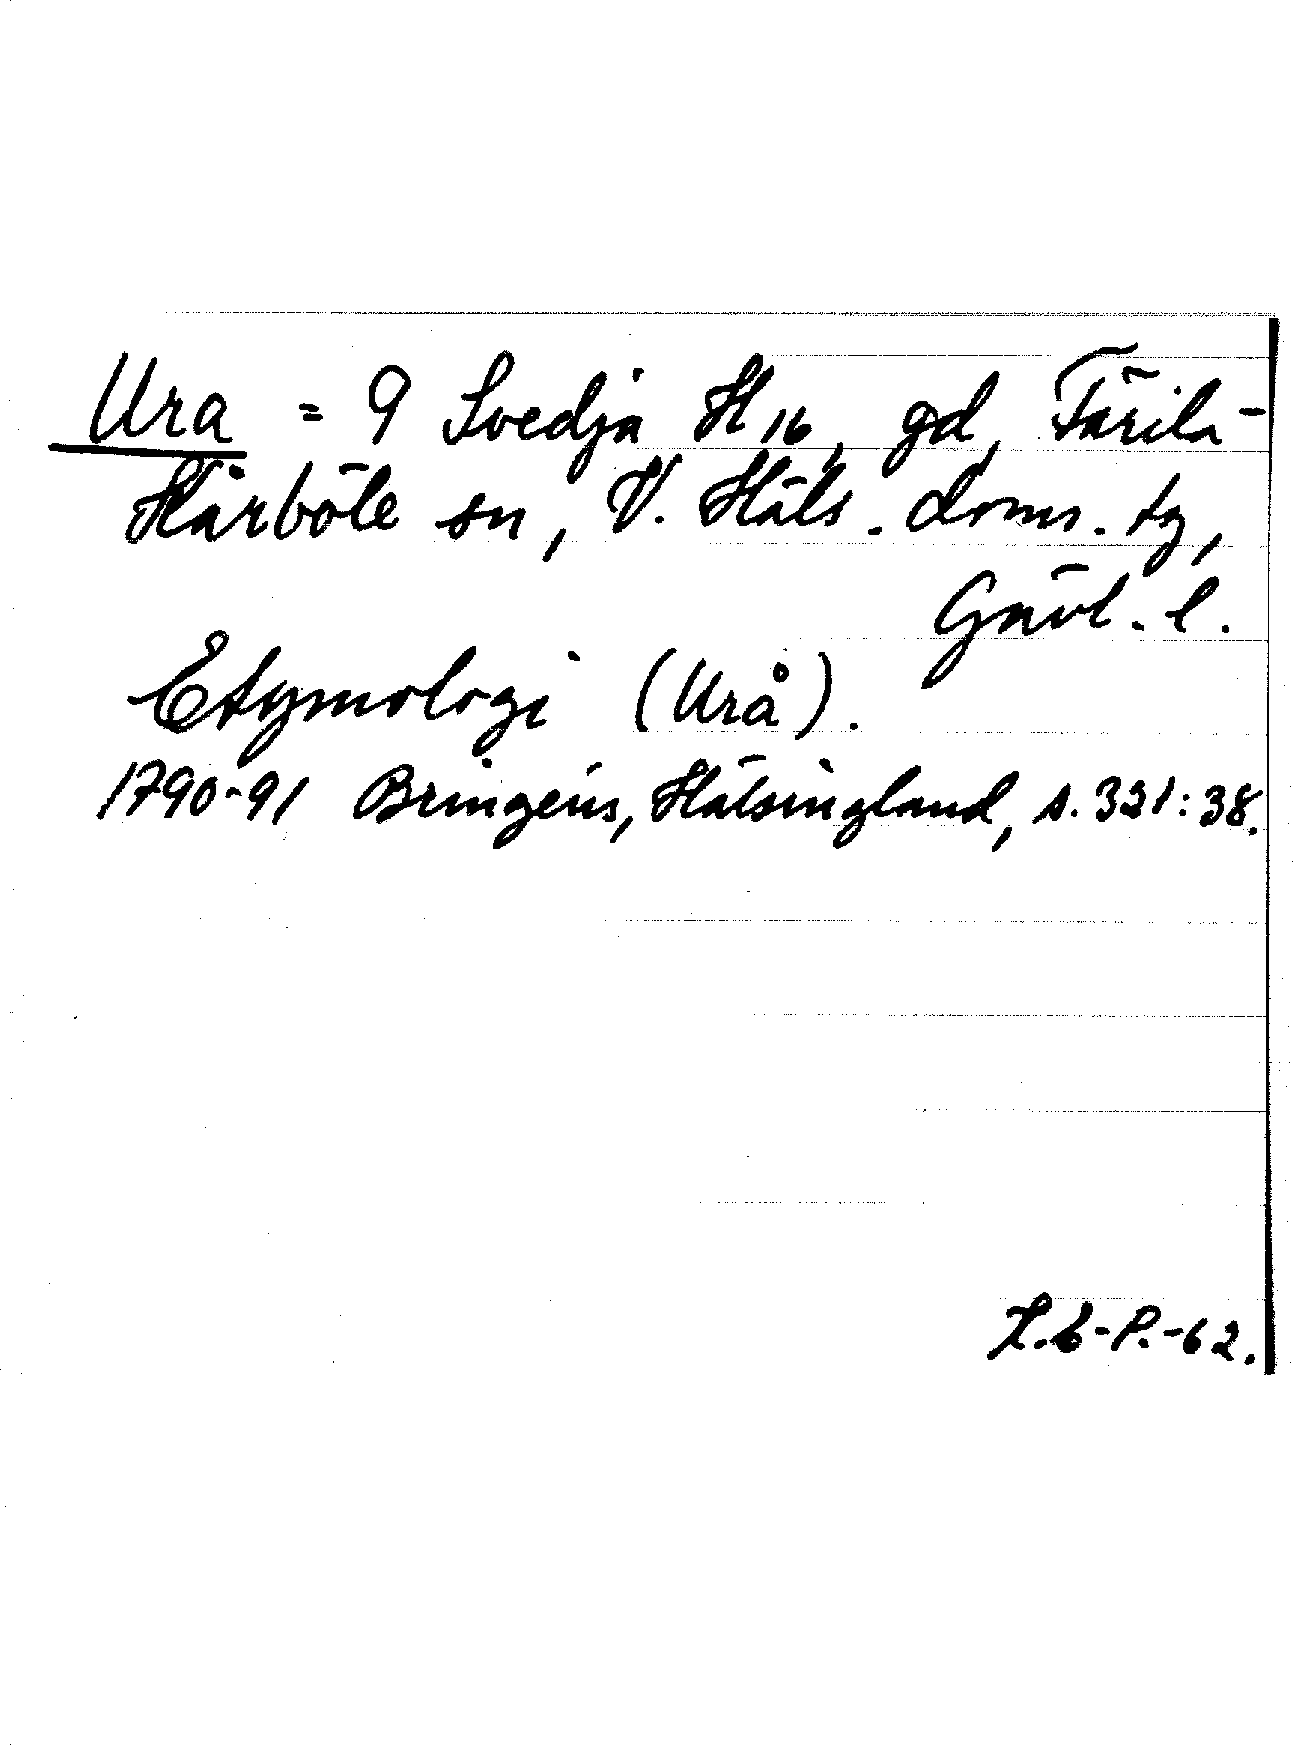 Ura = 9 Svedja H16, gd, Färila-
Kårböle sn, V. Häls. doms. tg,
Gävl. l.
Etymologi (Urå).
1790-91 Bringéus, Hälsingland, s. 321:38.
L.E-P.-62.